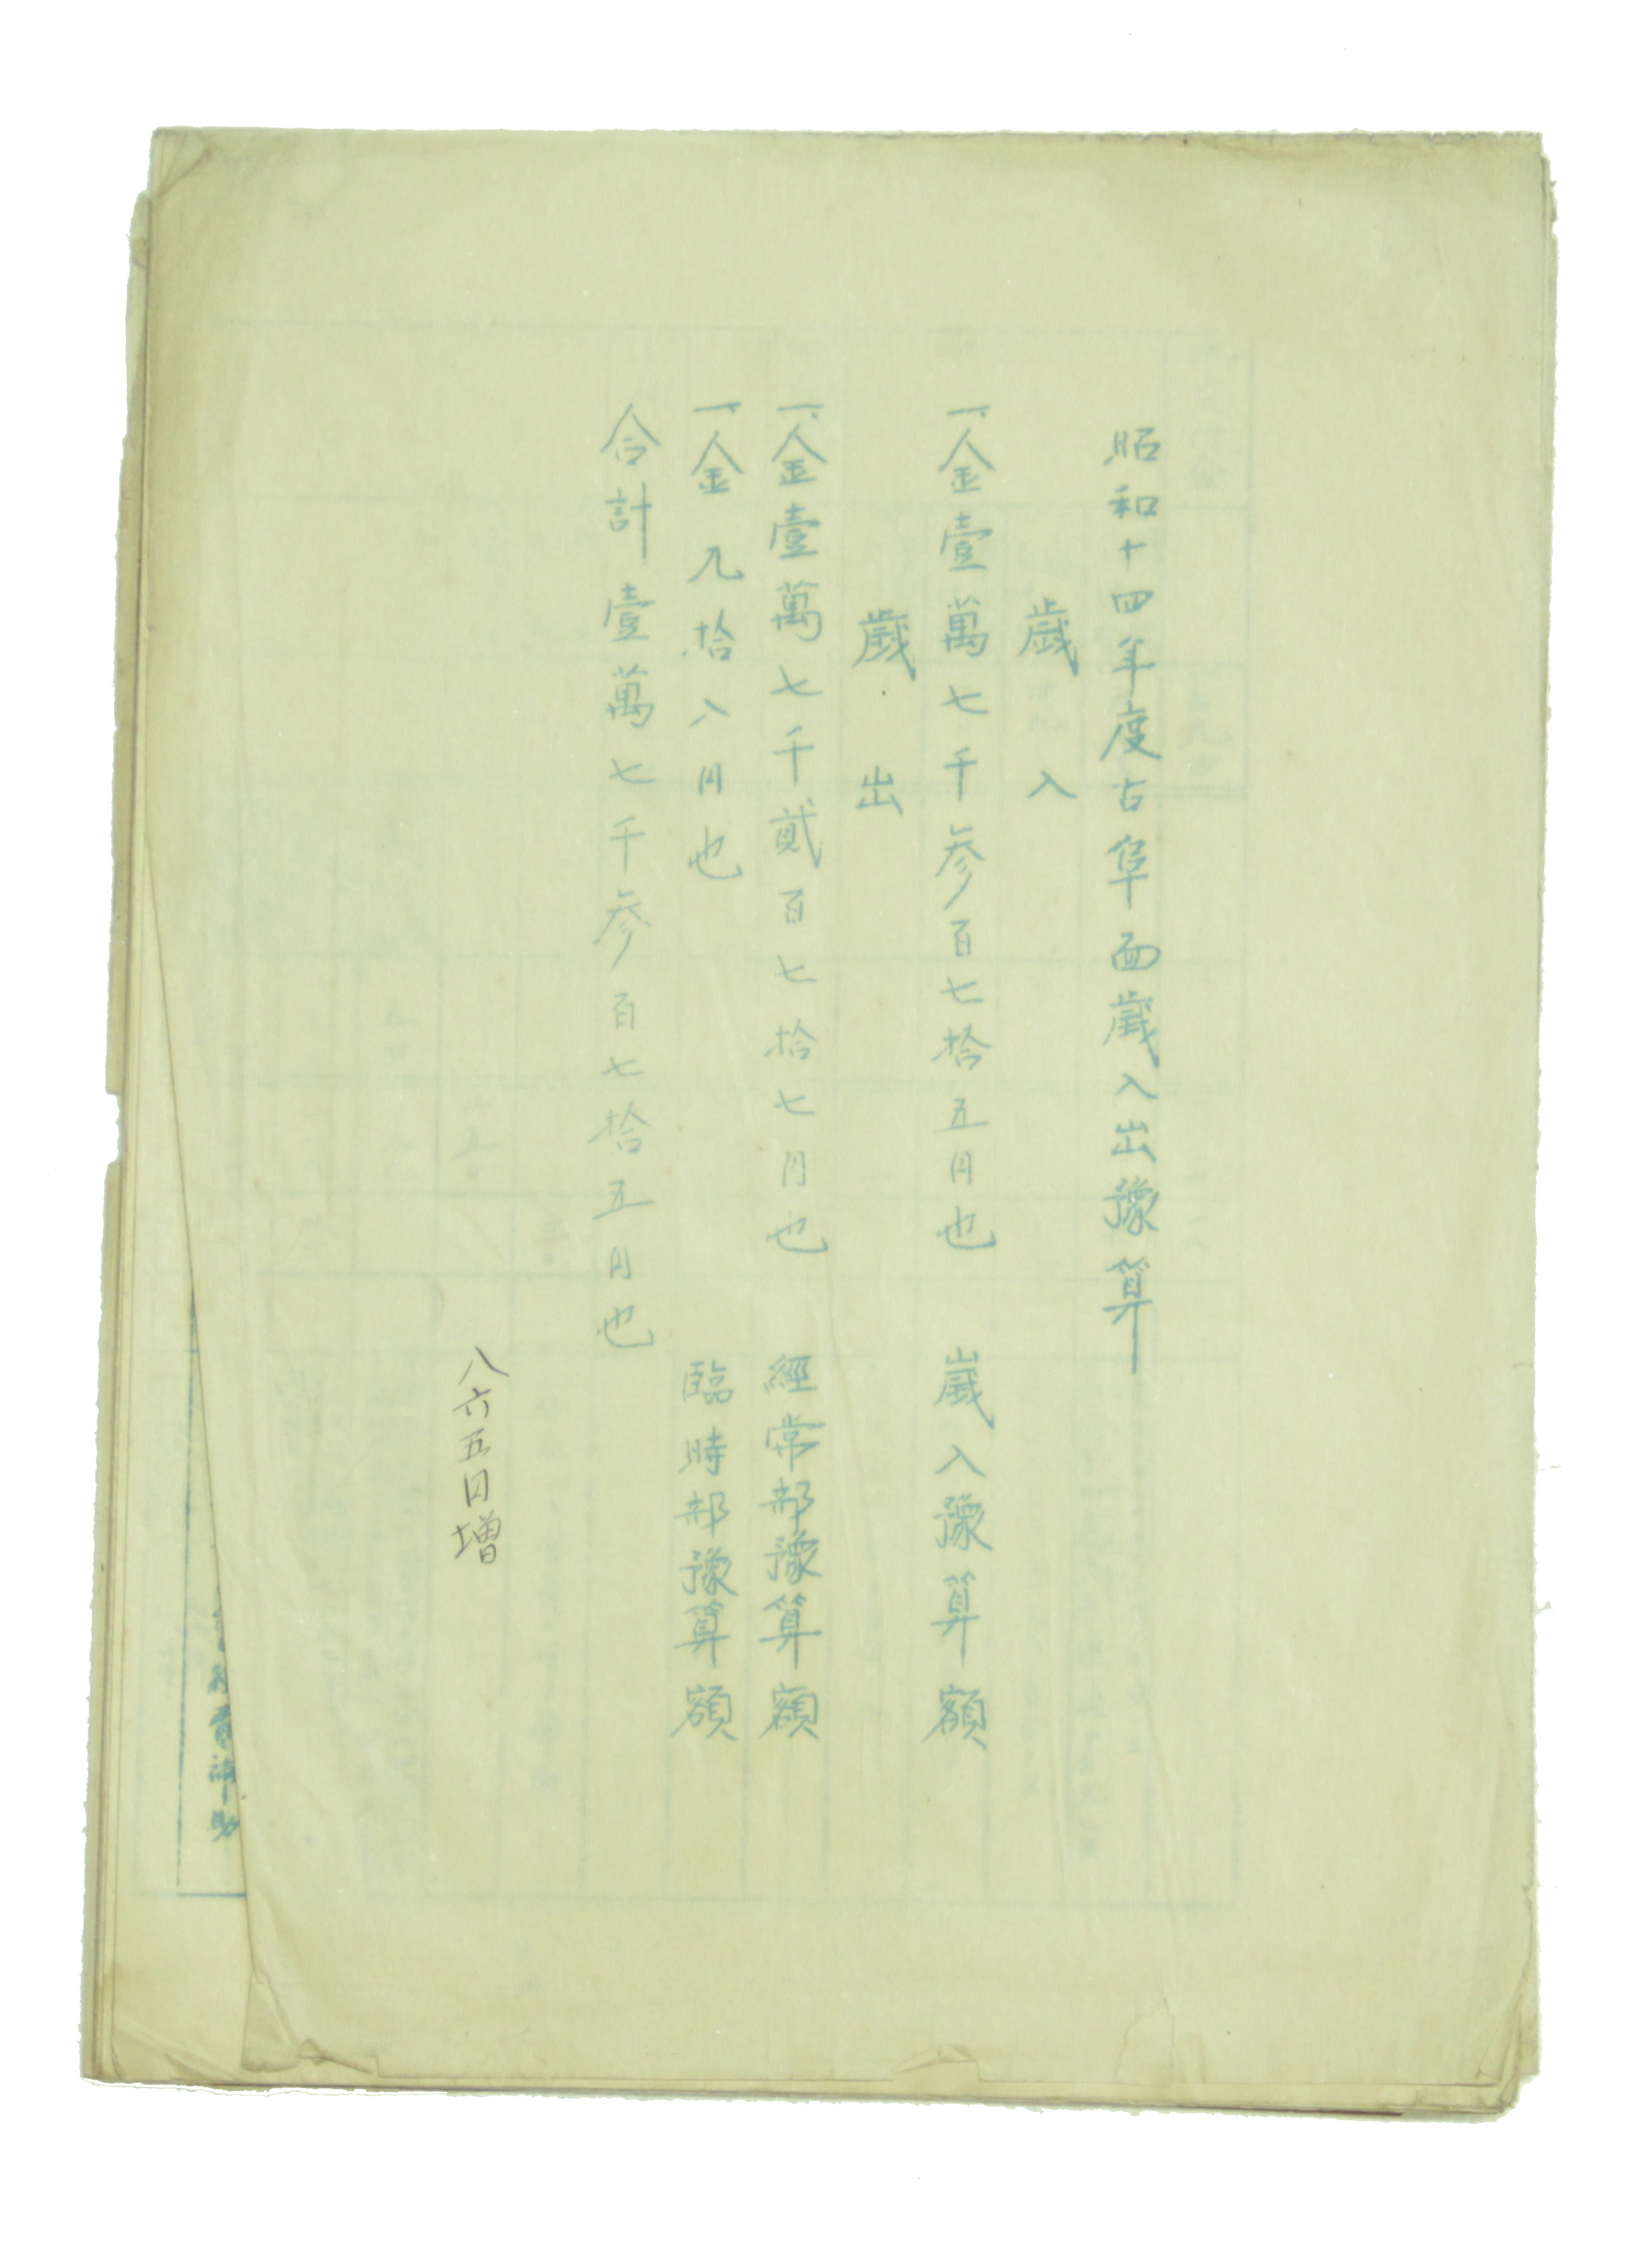 昭和十四年度古阜面歲入出豫算
歲入
一、金壹萬七千参百七拾五円也 歲入豫算額
歲出
一、金壹萬七千貳百七拾七円也 經常部豫算額
一、金九拾八円也 臨時部豫算額
合計壹萬七千参百七拾五円也
八六五円增
費補助